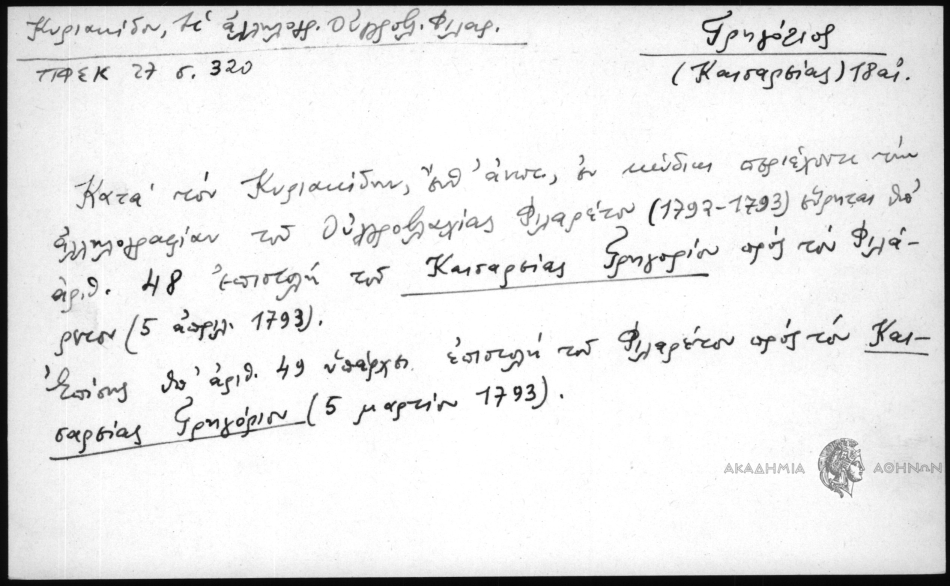 Κυριακίδου, Ἡ ἀλληλογρ. Οὑγγροβλ. Φιλαρ.
ΠΦΣΚ 27 σ. 320
Γρηγόριος
(Καισαρείας) 18 αἰ.
Κατά τόν Κυριακίδην, ἔνθ' ἀνωτ., ἐν κώδικι περιέχοντι τήν
ἀλληλογραφίαν τοῦ Οὑγγροβλαχίας Φιλαρέτου (1792-1793) εὕρηται ὑπ'
ἀριθ. 48 ἐπιστολή τοῦ Καισαρείας Γρηγορίου πρός τόν Φιλά-
ρετον (5 ἀπριλ. 1793).
Ἐπίσης ὑπ' ἀριθ. 49 ὑπάρχει ἐπιστολή τοῦ Φιλαρέτου πρός τόν Και-
σαρείας Γρηγόριον (5 μαρτίου 1793).
ΑΚΑΔΗΜΙΑ ΑΘΗΝΩΝ